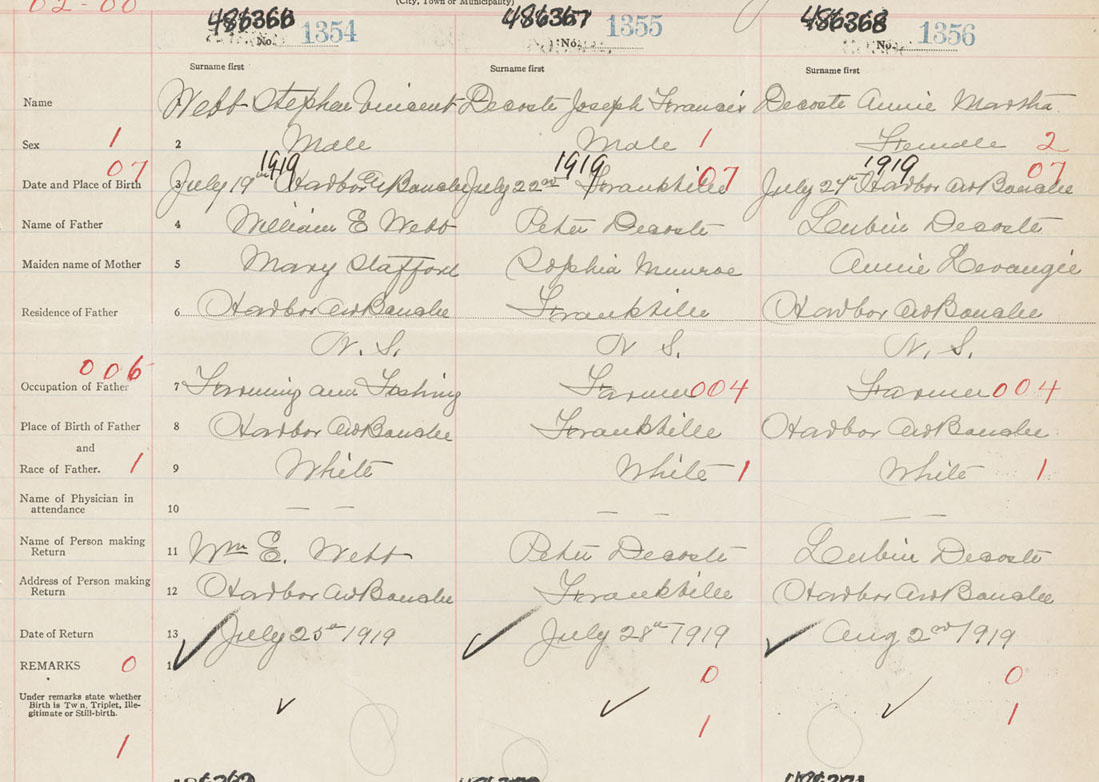 02-00
(City, Town or Municipality)
486366 486367 486368
No. 1354 No. 1355 No. 1356
Surname first Surname first Surname first
Name Webb Stephen Vincent Decoste Joseph Francis Decoste Annie Martha
Sex 1 2 Male Male 1 Female 2
07 1919 1919 1919
Date and Place of Birth 3 July 19th Harbor Au Bouche July 22nd Frankville 07 July 27th Harbor Au Bouche 07
Name of Father 4 William E Webb Peter Decoste Lubin Decoste
Maiden name of Mother 5 Mary Stafford Sophia Munroe Annie Levangie
Residence of Father 6 Harbor Au Bouche Frankville Harbor Au Bouche
N. S. N S. N. S.
006
Occupation of Father 7 Farming and Fishing Farmer 004 Farmer 004
Place of Birth of Father 8 Harbor Au Bouche Frankville Harbor Au Bouche
and
Race of Father. 1 9 White White 1 White 1
Name of Physician in
attendance 10 — — — — — —
Name of Person making
Return 11 Wm E. Webb Peter Decoste Lubin Decoste
Address of Person making
Return 12 Harbor Au Bouche Frankville Harbor Au Bouche
Date of Return 13 July 25th 1919 July 28th 1919 Aug 2nd 1919
REMARKS 0 0 0
Under remarks state whether
Birth is Twin, Triplet, Ille-
gitimate or Still-birth.
1 1 1